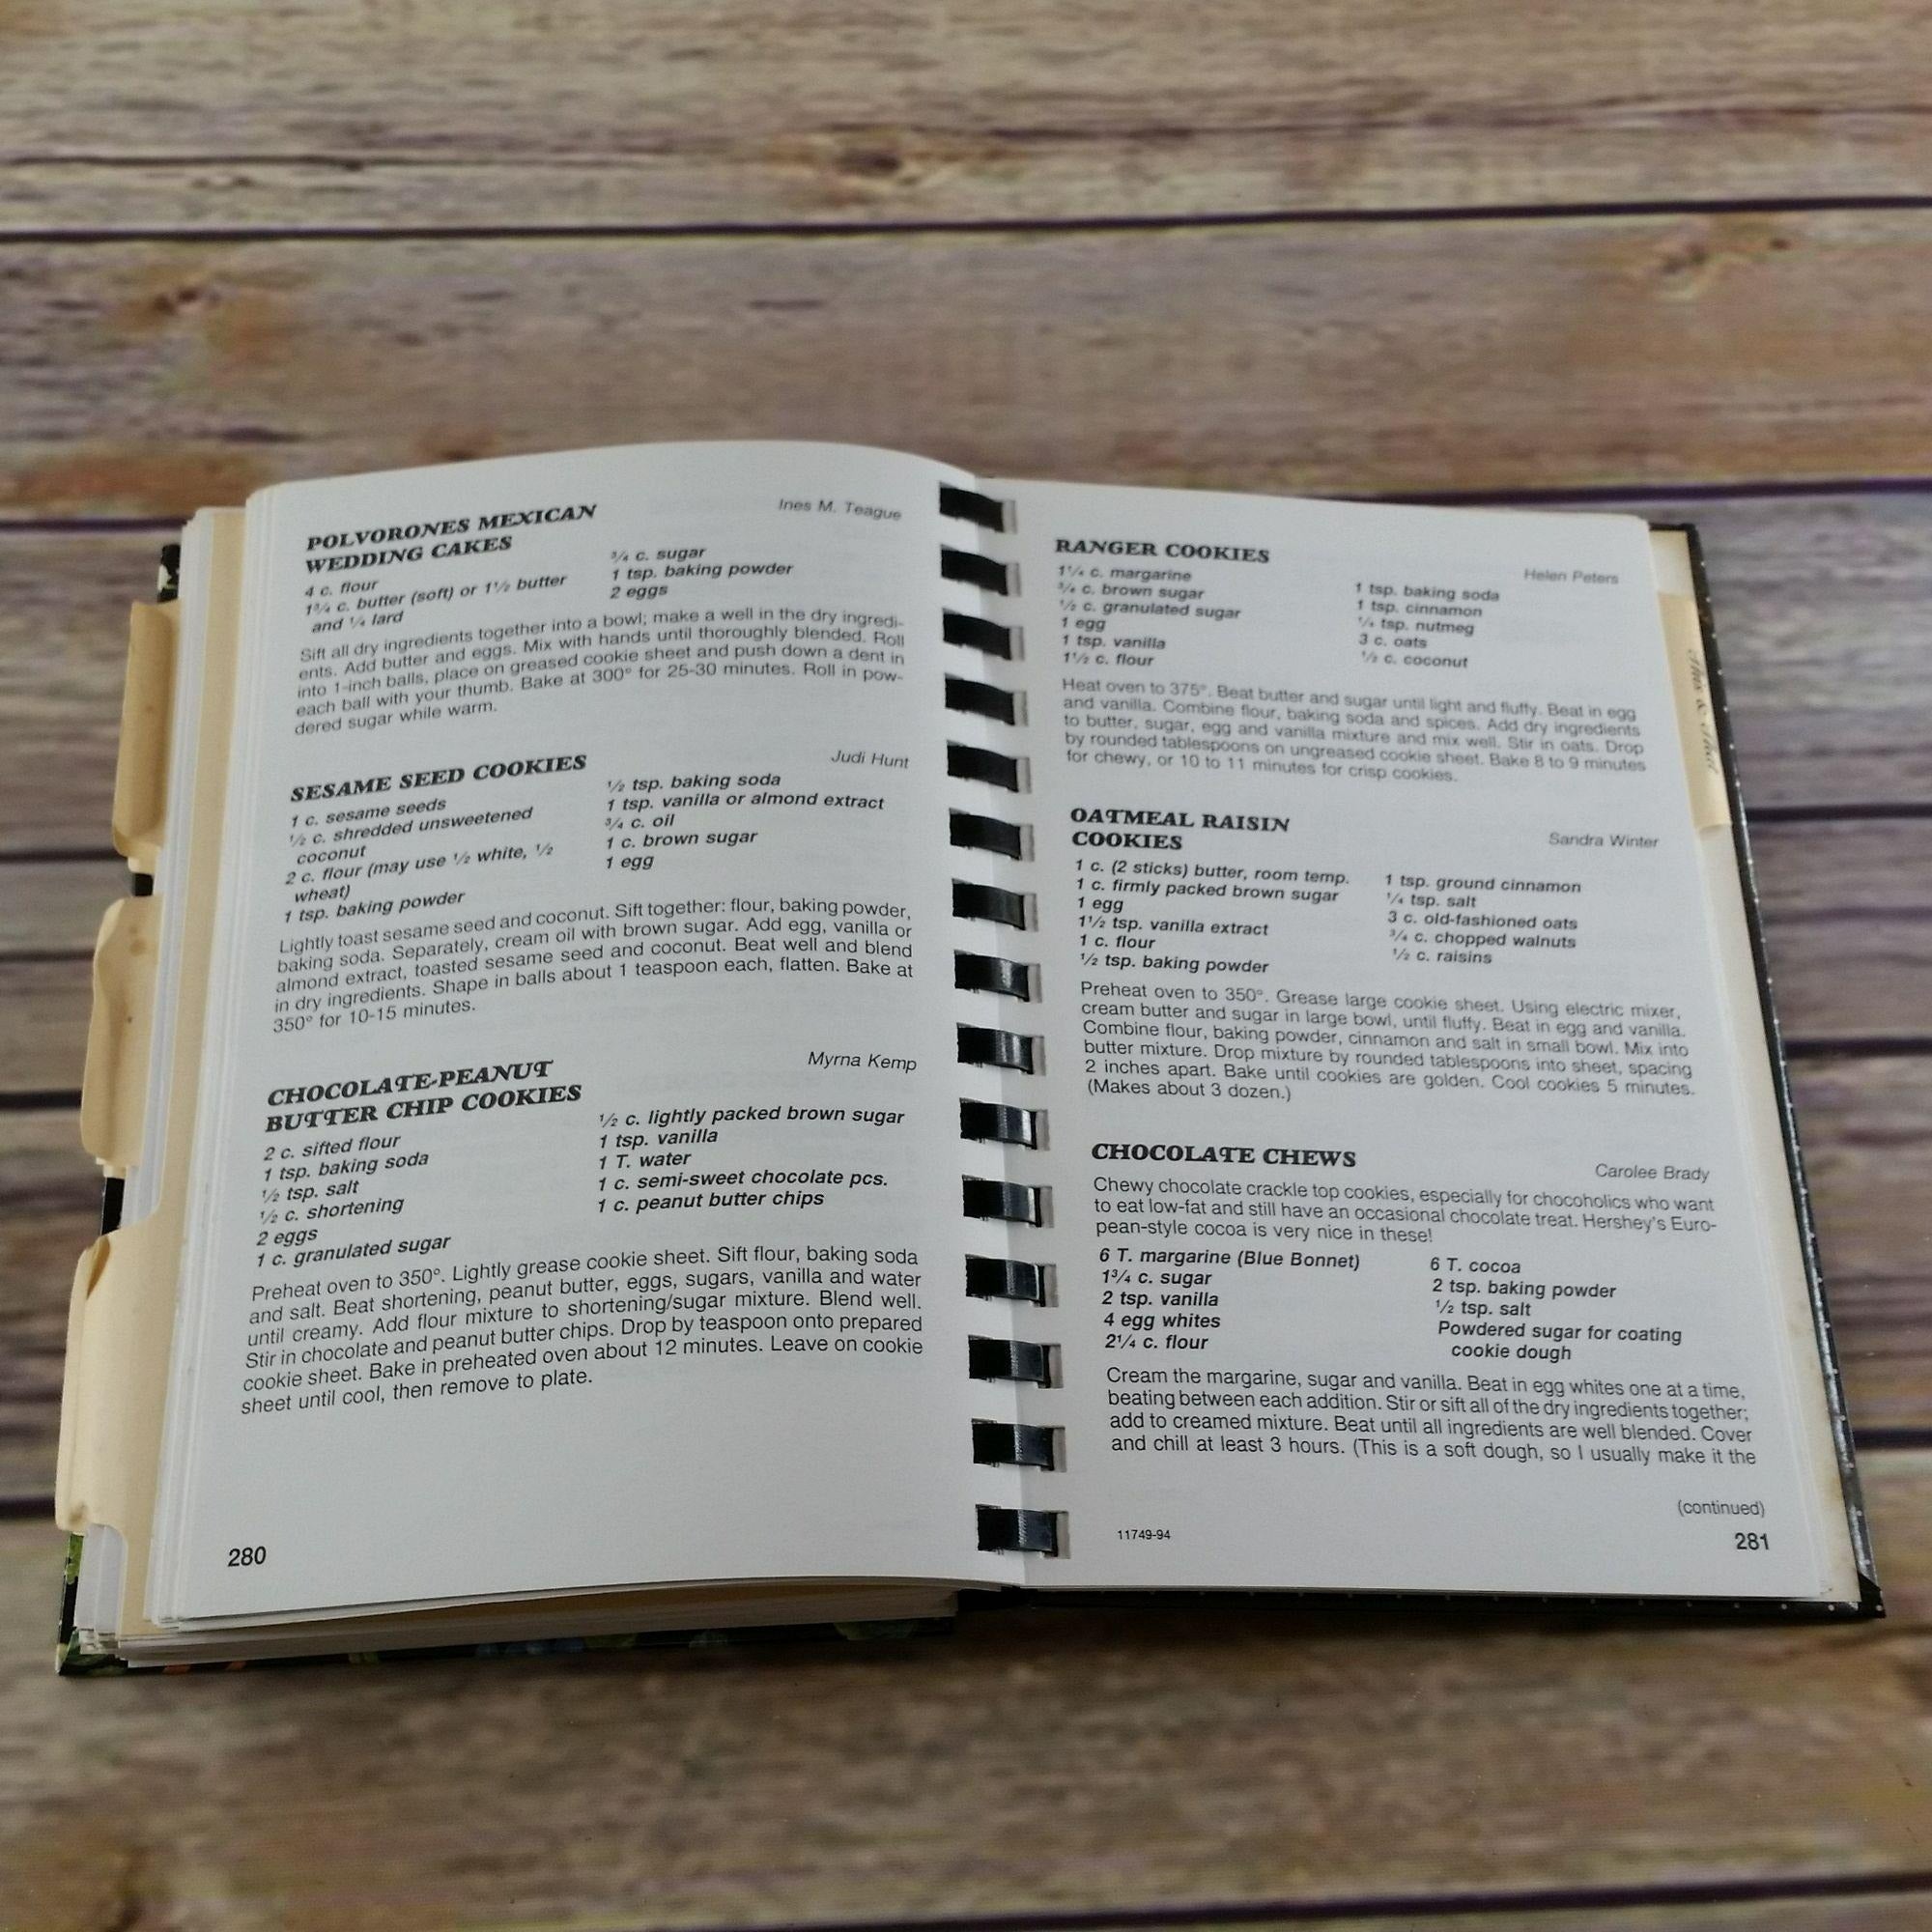 Ines M. Teague
POLVORONES MEXICAN
WEDDING CAKES
4 c. flour
1¾ c. butter (soft) or 1½ butter
and ¼ lard
¾ c. sugar
1 tsp. baking powder
2 eggs
Sift all dry ingredients together into a bowl; make a well in the dry ingredi-
ents. Add butter and eggs. Mix with hands until thoroughly blended. Roll
into 1-inch balls, place on greased cookie sheet and push down a dent in
each ball with your thumb. Bake at 300° for 25-30 minutes. Roll in pow-
dered sugar while warm.
Judi Hunt
SESAME SEED COOKIES
1 c. sesame seeds
½ c. shredded unsweetened
coconut
2 c. flour (may use ½ white, ½
wheat)
1 tsp. baking powder
½ tsp. baking soda
1 tsp. vanilla or almond extract
¾ c. oil
1 c. brown sugar
1 egg
Lightly toast sesame seed and coconut. Sift together: flour, baking powder,
baking soda. Separately, cream oil with brown sugar. Add egg, vanilla or
almond extract, toasted sesame seed and coconut. Beat well and blend
in dry ingredients. Shape in balls about 1 teaspoon each, flatten. Bake at
350° for 10-15 minutes.
Myrna Kemp
CHOCOLATE-PEANUT
BUTTER CHIP COOKIES
2 c. sifted flour
1 tsp. baking soda
½ tsp. salt
½ c. shortening
2 eggs
1 c. granulated sugar
½ c. lightly packed brown sugar
1 tsp. vanilla
1 T. water
1 c. semi-sweet chocolate pcs.
1 c. peanut butter chips
Preheat oven to 350°. Lightly grease cookie sheet. Sift flour, baking soda
and salt. Beat shortening, peanut butter, eggs, sugars, vanilla and water
until creamy. Add flour mixture to shortening/sugar mixture. Blend well.
Stir in chocolate and peanut butter chips. Drop by teaspoon onto prepared
cookie sheet. Bake in preheated oven about 12 minutes. Leave on cookie
sheet until cool, then remove to plate.
280
RANGER COOKIES
Helen Peters
1¼ c. margarine
¾ c. brown sugar
½ c. granulated sugar
1 egg
1 tsp. vanilla
1½ c. flour
1 tsp. baking soda
1 tsp. cinnamon
¼ tsp. nutmeg
3 c. oats
½ c. coconut
Heat oven to 375°. Beat butter and sugar until light and fluffy. Beat in egg
and vanilla. Combine flour, baking soda and spices. Add dry ingredients
to butter, sugar, egg and vanilla mixture and mix well. Stir in oats. Drop
by rounded tablespoons on ungreased cookie sheet. Bake 8 to 9 minutes
for chewy, or 10 to 11 minutes for crisp cookies.
OATMEAL RAISIN
COOKIES
Sandra Winter
1 c. (2 sticks) butter, room temp.
1 c. firmly packed brown sugar
1 egg
1½ tsp. vanilla extract
1 c. flour
½ tsp. baking powder
1 tsp. ground cinnamon
¼ tsp. salt
3 c. old-fashioned oats
¾ c. chopped walnuts
½ c. raisins
Preheat oven to 350°. Grease large cookie sheet. Using electric mixer,
cream butter and sugar in large bowl, until fluffy. Beat in egg and vanilla.
Combine flour, baking powder, cinnamon and salt in small bowl. Mix into
butter mixture. Drop mixture by rounded tablespoons into sheet, spacing
2 inches apart. Bake until cookies are golden. Cool cookies 5 minutes.
(Makes about 3 dozen.)
CHOCOLATE CHEWS
Carolee Brady
Chewy chocolate crackle top cookies, especially for chocoholics who want
to eat low-fat and still have an occasional chocolate treat. Hershey's Euro-
pean-style cocoa is very nice in these!
6 T. margarine (Blue Bonnet)
1¾ c. sugar
2 tsp. vanilla
4 egg whites
2¼ c. flour
6 T. cocoa
2 tsp. baking powder
½ tsp. salt
Powdered sugar for coating
cookie dough
Cream the margarine, sugar and vanilla. Beat in egg whites one at a time,
beating between each addition. Stir or sift all of the dry ingredients together;
add to creamed mixture. Beat until all ingredients are well blended. Cover
and chill at least 3 hours. (This is a soft dough, so I usually make it the
(continued)
11749-94
281
This & That